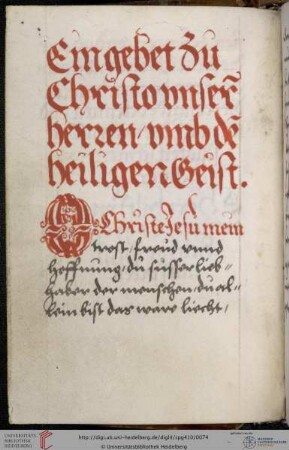 Ein gebet zů
Christo vnserm̄
herren / vmb dē
heiligen Geist.
O Christe Jesu mein
trost, freud vnnd
hoffnung, du süsser lieb=
haber der menschen, du al=
lein bist das ware liecht,
UNIVERSITÄTS-
BIBLIOTHEK
HEIDELBERG
http://digi.ub.uni-heidelberg.de/diglit/cpg410/0074
© Universitätsbibliothek Heidelberg